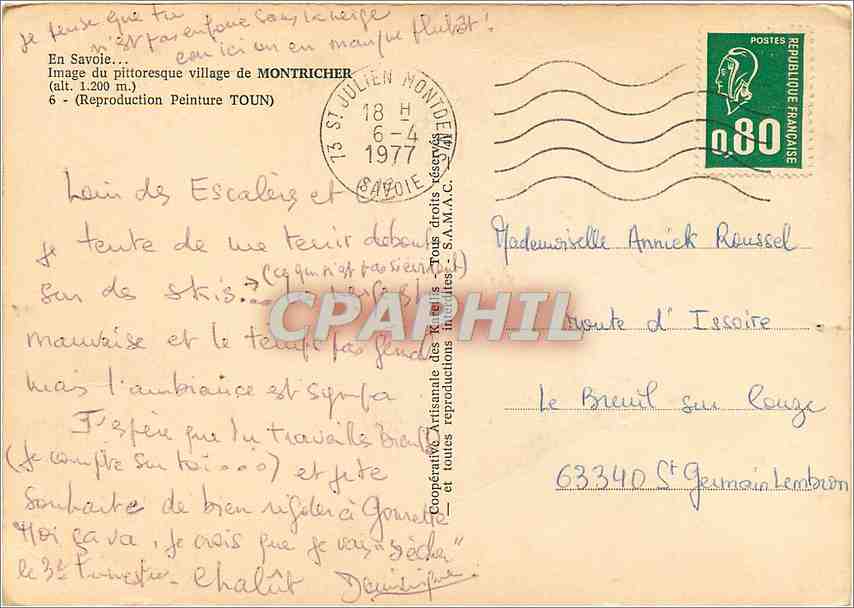 je pense que tu
n'est pas enfoui sous la neige
car ici on en manque plutôt !
En Savoie...
Image du pittoresque village de MONTRICHER
(alt. 1.200 m.)
6 - (Reproduction Peinture TOUN)
73 ST JULIEN MONTDENIS
18 H
6-4
1977
SAVOIE
POSTES
REPUBLIQUE FRANÇAISE
0,80
Loin des Escaliers et
je tente de me tenir debout
sur des skis...
(ce qui n'est pas si évident)
mauvaise et le temps pas
mais l'ambiance est sympa
J'espère que tu travailles
(je compte sur toi...) et je te
souhaite de bien rigoler à Gourette
Moi ça va, je crois que je vais "sécher"
le 3e trimestre. Chalût Dominique
Coopérative Artisanale des Karellis - Tous droits réservés
- et toutes reproductions interdites - S.A.M.A.C. -
CPAPHIL
Mademoiselle Annick Roussel
route d'Issoire
Le Breuil sur Couze
63340 St Germain Lembron